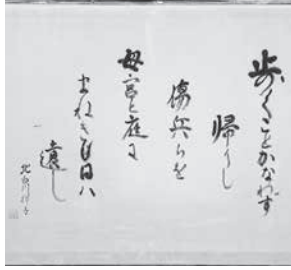 歩くことかなわず
帰りし
傷兵らを
母宮と庭に
まねきし日は
遠し